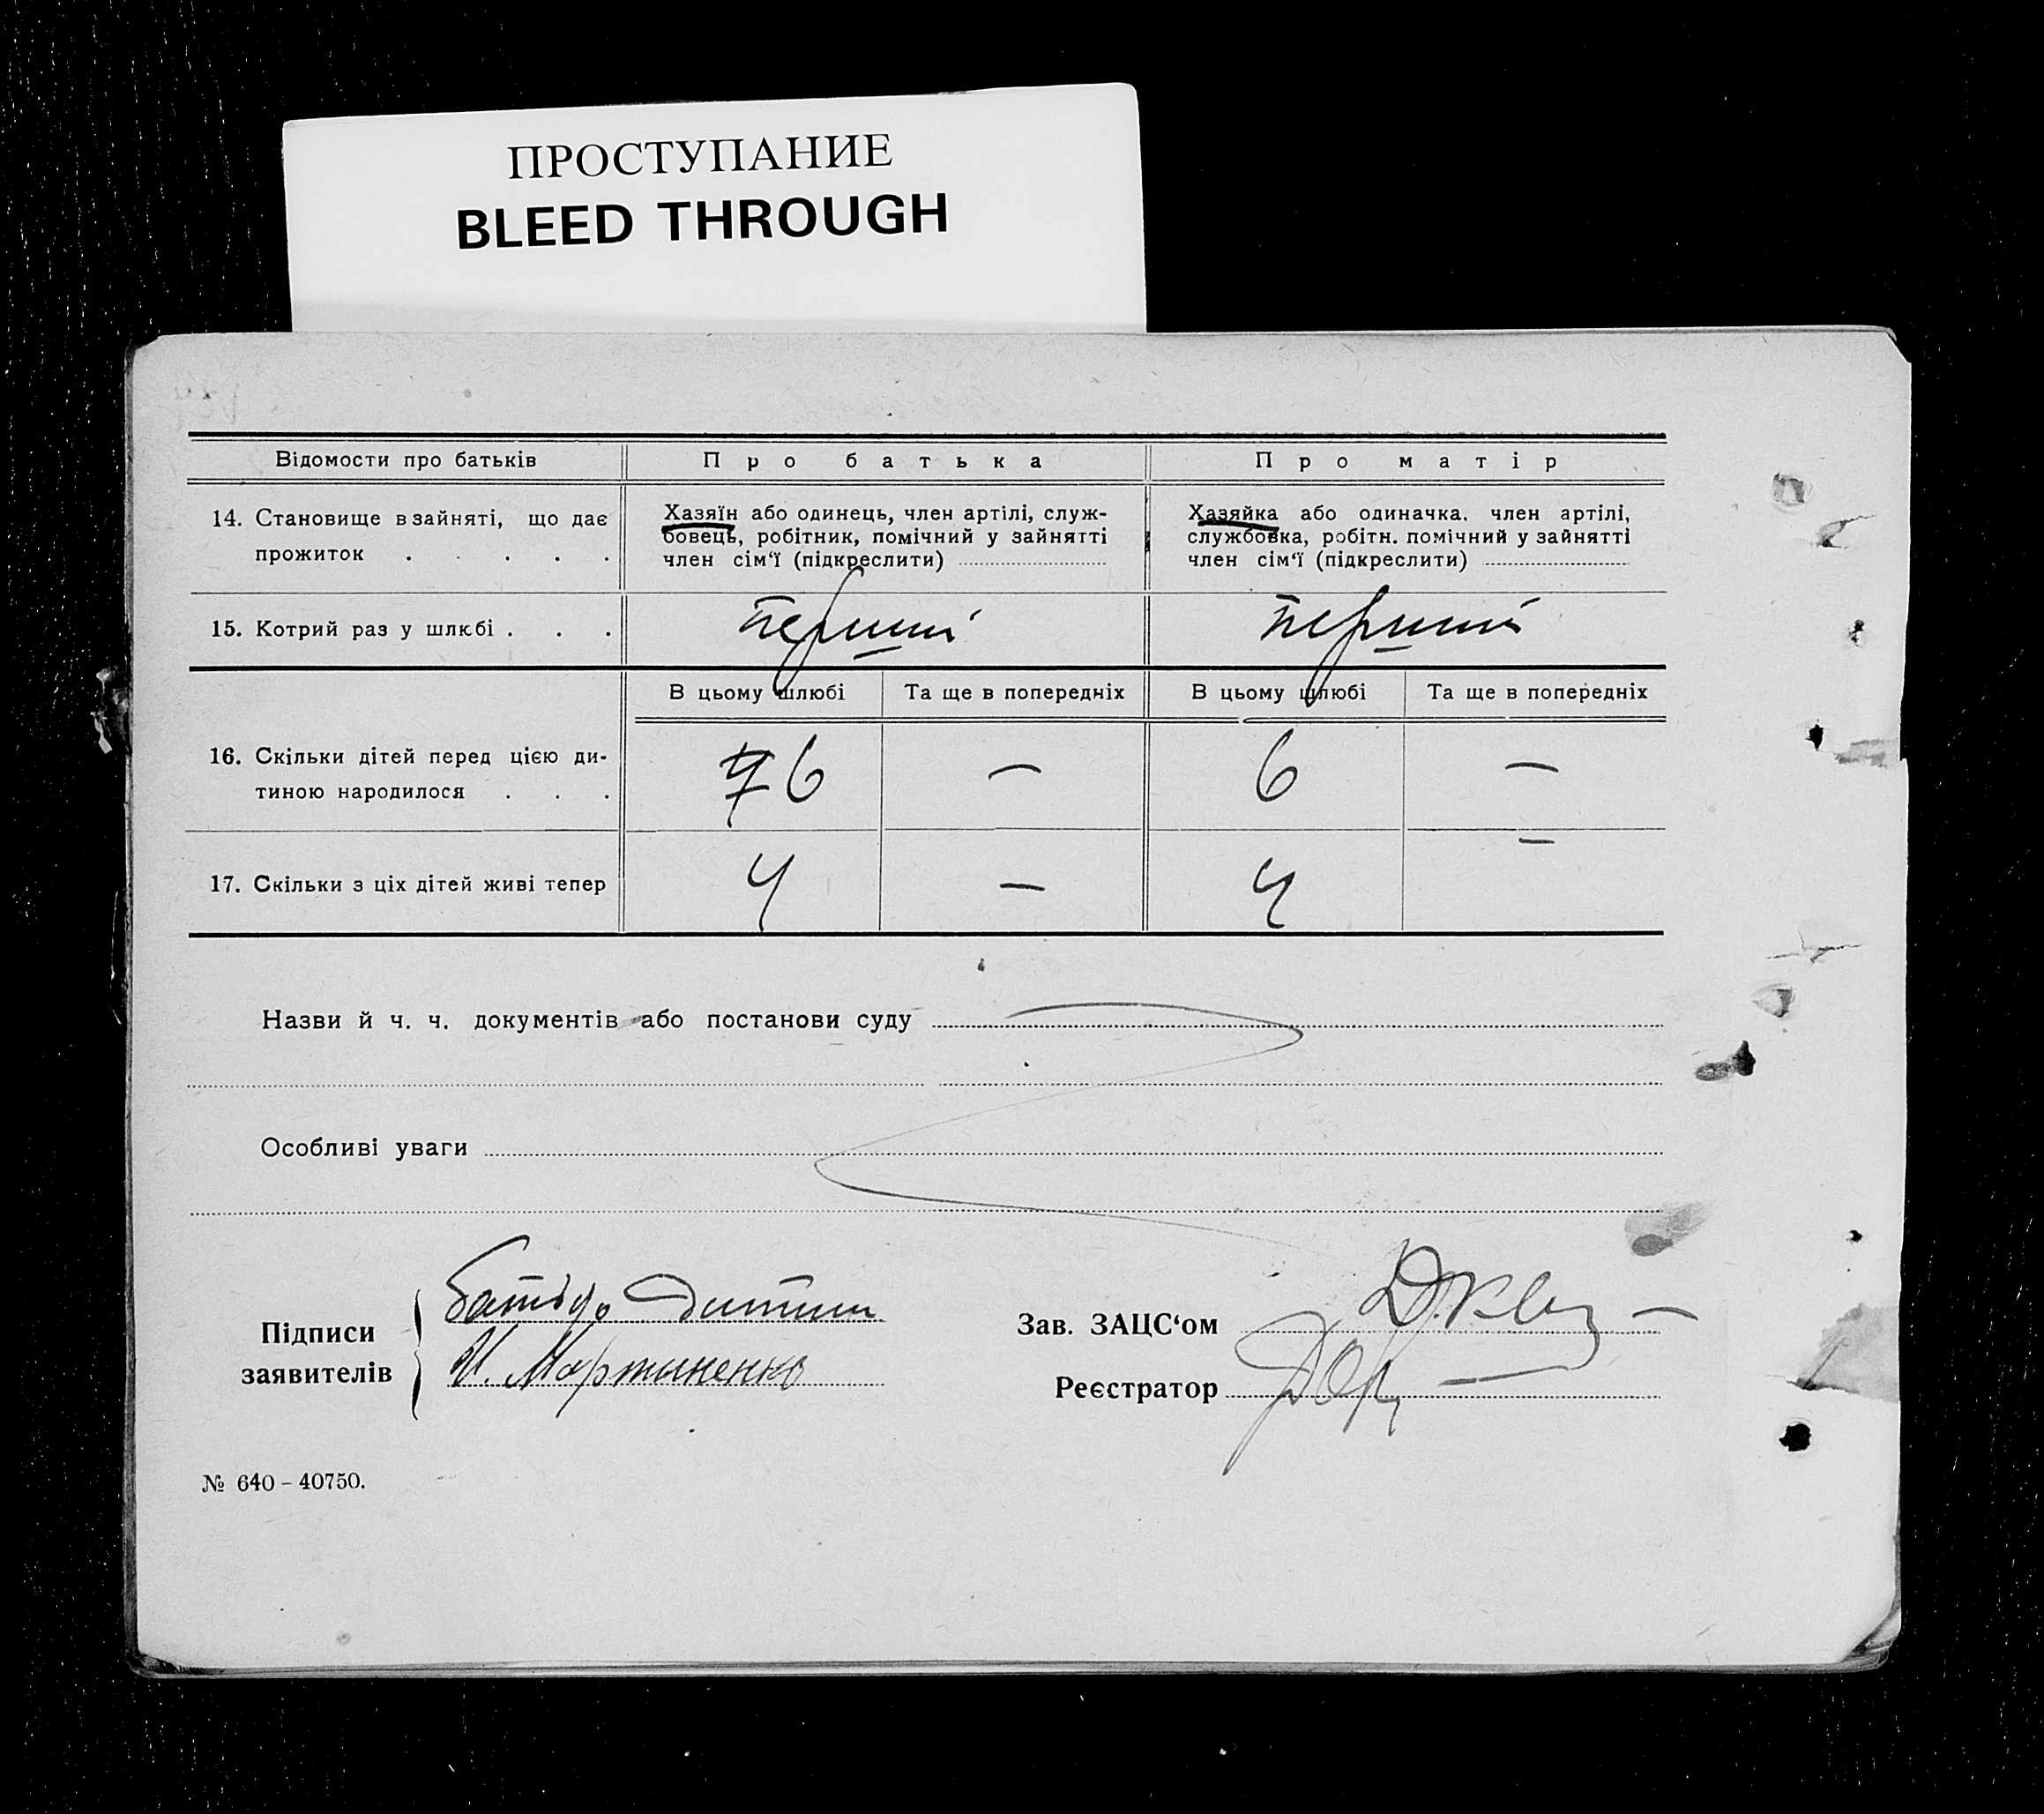 ПРОСТУПАНИЕ
BLEED THROUGH
Відомости про батьків
Про батька
Про матір
14. Становище в зайняті, що дає
прожиток . . . . .
Хазяїн або одинець, член артілі, служ-
бовець, робітник, помічний у зайнятті
член сім‘ї (підкреслити)
Хазяйка або одиначка. член артілі,
службовка, робітн. помічний у зайнятті
член сім‘ї (підкреслити)
15. Котрий раз у шлюбі . . .
перший
перший
В цьому шлюбі
Та ще в попередніх
В цьому шлюбі
Та ще в попередніх
16. Скільки дітей перед цією ди-
тиною народилося . . .
7 6
—
6
—
17. Скільки з ціх дітей живі тепер
4
—
4
—
Назви й ч. ч. документів або постанови суду
Особливі уваги
Підписи
заявителів
батько дитини
И. Мартиненко
Зав. ЗАЦС‘ом
Реєстратор
№ 640 – 40750.